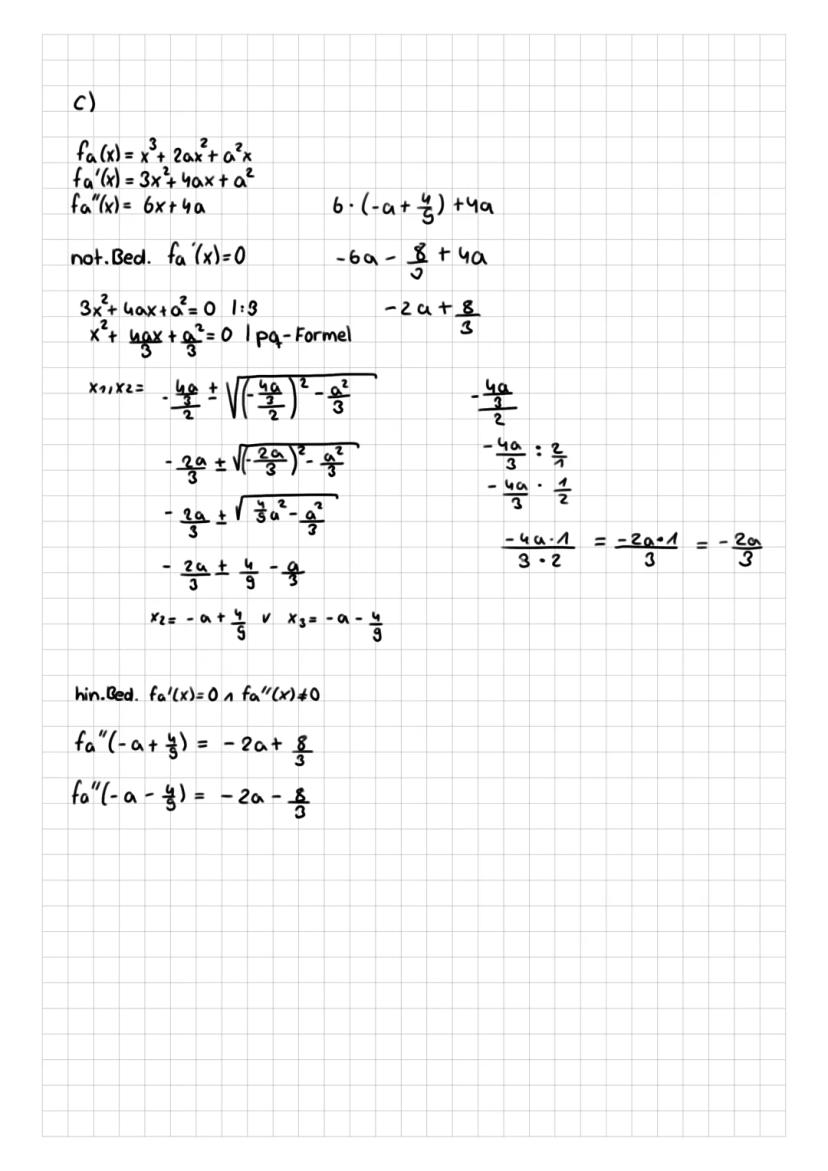 c)
fa(x) = x³ + 2ax² + a²x
fa'(x) = 3x² + 4ax + a²
fa''(x) = 6x + 4a
6 · (-a + 4/9) + 4a
not. Bed. fa'(x) = 0
-6a - 8/3 + 4a
3x² + 4ax + a² = 0 |:3
-2a + 8/3
x² + 4ax/3 + a²/3 = 0 | pq-Formel
x1,x2 = - (4a/3)/2 ± √((- (4a/3)/2)² - a²/3)
- (4a/3)/2
- 2a/3 ± √((- 2a/3)² - a²/3)
- 4a/3 : 2/1
- 4a/3 · 1/2
- 2a/3 ± √(4/9 a² - a²/3)
(-4a·1)/(3·2) = (-2a·1)/3 = - 2a/3
- 2a/3 ± 4/9 - a/3
x2 = -a + 4/9 ∨ x3 = -a - 4/9
hin. Bed. fa'(x) = 0 ∧ fa''(x) ≠ 0
fa''(-a + 4/9) = -2a + 8/3
fa''(-a - 4/9) = -2a - 8/3